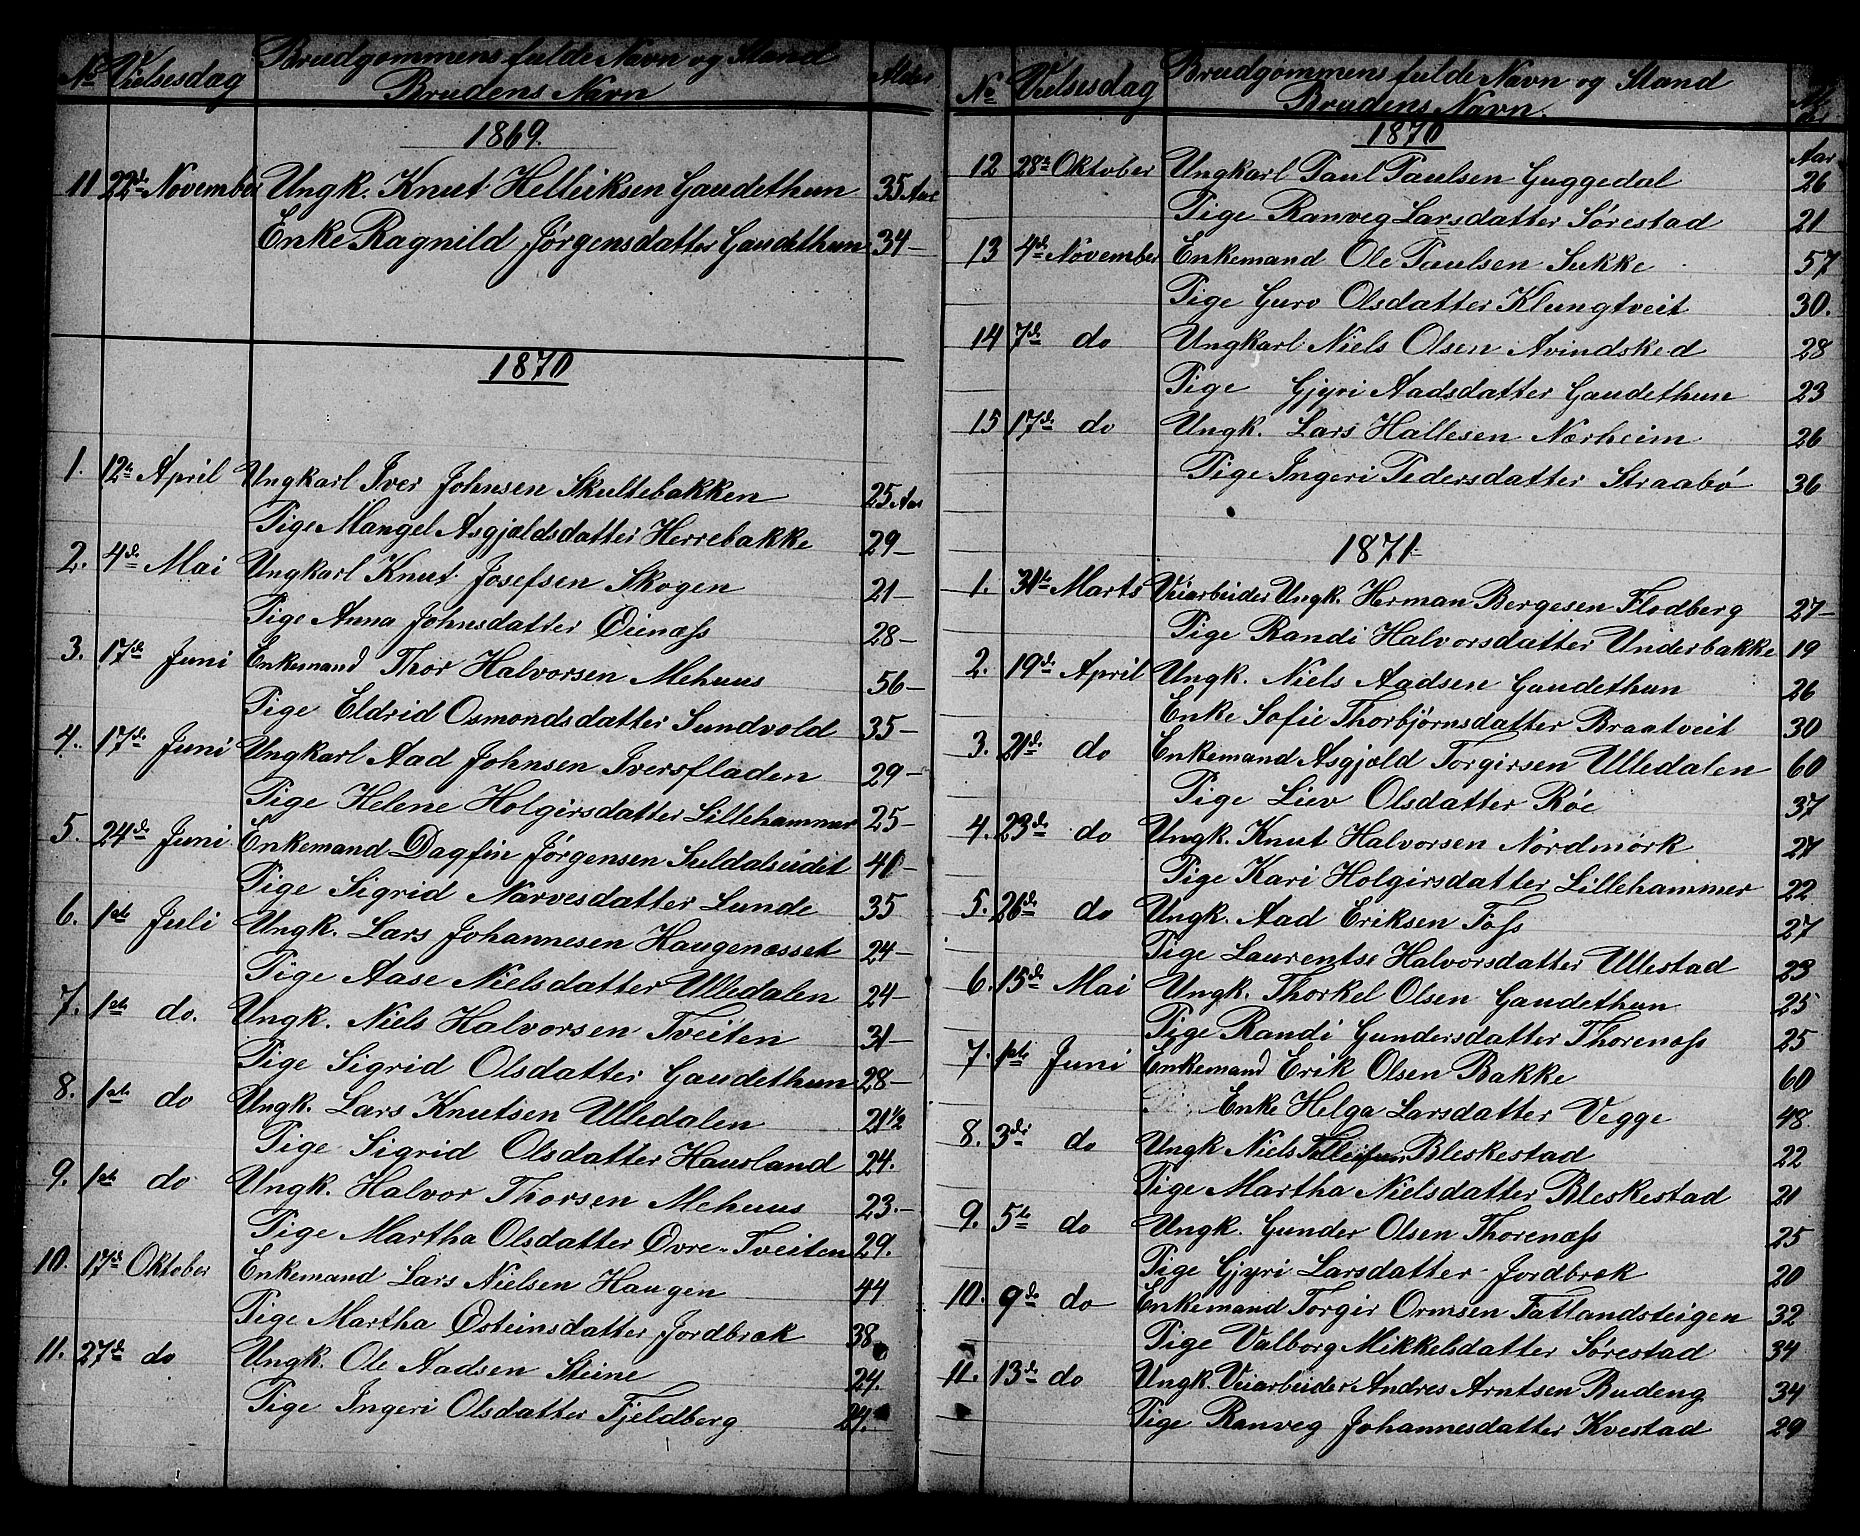 No Vielsesdag Brudgommens fulde Navn og Stand Alder
Brudens Navn
1869.
11 22de November Ungk. Knut Helleiksen Gaudethun 35 Aar
Enke Ragnild Jørgensdatter Gaudethun 34 –
1870
1. 12te April Ungkarl Iver Johnsen Skultebakken 25 Aar
Pige Mangel Asgjældsdatter Herrebakke 29 –
2. 4de Mai Ungkarl Knut Josefsen Skogen 21 –
Pige Anna Johnsdatter Øienæss 28 –
3. 17de Juni Enkemand Thor Halvorsen Mehuus 56 –
Pige Eldrid Osmondsdatter Sundvold 35 –
4. 17de Juni Ungkarl Aad Johnsen Iversfladen 29 –
Pige Helene Holgirsdatter Lillehammer 25 –
5. 24de Juni Enkemand Dagfin Jørgensen Suldalseidet 41 –
Pige Sigrid Narvesdatter Lunde 35
6. 1ste Juli Ungk. Lars Johannesen Haugenæsset 24 –
Pige Aase Nielsdatter Ulledalen 24 –
7. 1ste do. Ungk. Niels Halvorsen Tveiten 31 –
Pige Sigrid Olsdatter Gaudethun 28 –
8. 1ste do Ungk. Lars Knutsen Ulledalen 21 1/2
Pige Sigrid Olsdatter Hausland 24.
9. 1ste do Ungk. Halvor Thorsen Mehuus 23. –
Pige Martha Olsdatter Øvre-Tveiten 29.
10. 17de Oktober Enkemand Lars Nielsen Haugen 44
Pige Martha Østeinsdatter Jordbræk 38
11. 27de do Ungk. Ole Aadsen Steine 24.
Pige Ingeri Olsdatter Fjeldberg 24.
No Vielsesdag Brudgommens fulde Navn og Stand
Brudens Navn.
1870
Aar
12 28de Oktober Ungkarl Paul Paulsen Guggedal 26
Pige Ranveg Larsdatter Sørestad 21
13 4de November Enkemand Ole Paulsen Sukke 57
Pige Guro Olsdatter Klungtveit 30.
14 7de do Ungkarl Niels Olsen Avindsked 28
Pige Gjyri Aadsdatter Gaudethun 23
15 17de do Ungk. Lars Hallesen Nærheim 26
Pige Ingeri Pedersdatter Straabø 36
1871.
1. 31te Marts Veiarbeider Ungk. Herman Bergesen Flodberg 27 –
Pige Randi Halvorsdatter Underbakke 19
2. 19de April Ungk. Niels Aadsen Gaudethun 26
Enke Sofie Thorbjørnsdatter Braatveit 30
3. 21de do Enkemand Asgjæld Torgirsen Ulledalen 60
Pige Liev Olsdatter Røe 37
4. 23de do Ungk. Knut Halvorsen Nordmork 27
Pige Kari Holgirsdatter Lillehammer 22
5. 26de do Ungk. Aad Eriksen Foss 27
Pige Laurentse Halvorsdatter Ullestad 23
6. 15de Mai Ungk. Thorkel Olsen Gaudethun 25
Pige Randi Gundersdatter Thorenæss 25
7. 1ste Juni Enkemand Erik Olsen Bakke 60
Enke Helga Larsdatter Vegge 48
8. 3de do Ungk Niels Bleskestad 22
Pige Martha Nielsdatter Bleskestad 21
9. 5te do Ungk. Gunder Olsen Thorenæss 25
Pige Gjyri Larsdatter Jordbræk 20
10. 9de do Enkemand Torgir Ormsen Fatlandsteigen 32
Pige Valborg Mikkelsdatter Sørestad 34
11. 13de do Ungk. Veiarbeider Andres Arntsen Budeng 34
Pige Ranveg Johannesdatter Kvestad 29